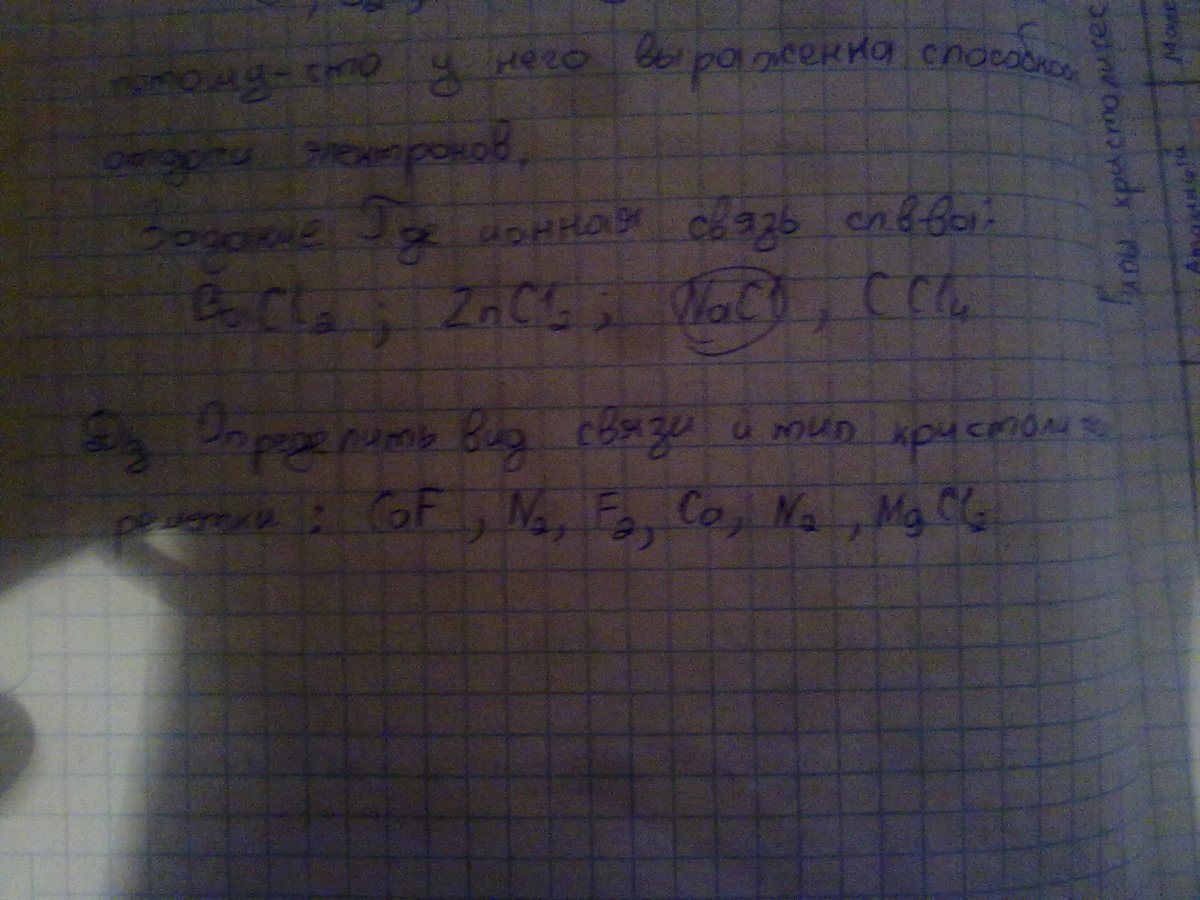 потому-что у него выраженна способност
отдачи электронов.
Задание Где ионная связь сп.в-ва:
BaCl₂ ; ZnCl₂ ; NaCl , CCl₄
Дз Определить вид связи и тип кристалич
решетки : CaF , N₂, F₂, Ca, N₂ , MgCl₂
Типы кристаличес